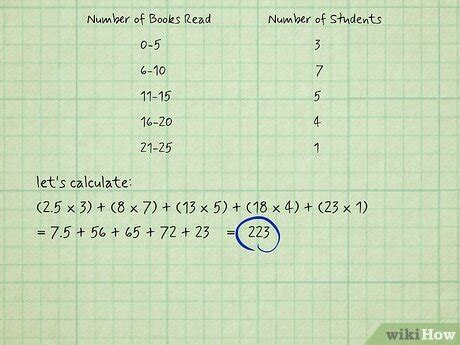 Number of Books Read Number of Students
0-5 3
6-10 7
11-15 5
16-20 4
21-25 1
let's calculate:
(2.5 x 3) + (8 x 7) + (13 x 5) + (18 x 4) + (23 x 1)
= 7.5 + 56 + 65 + 72 + 23 = 223
wikiHow